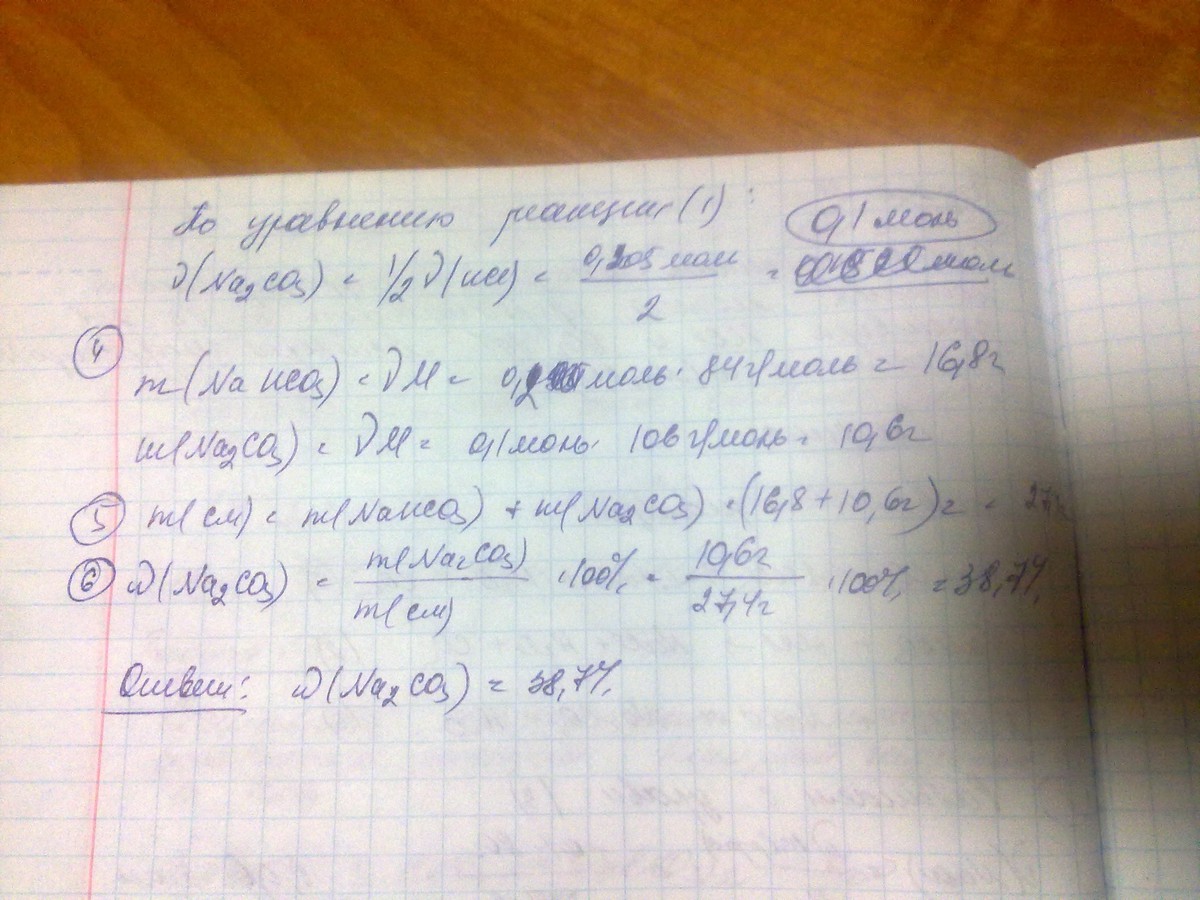 По уравнению реакции (1):
0,1 моль
ν(Na2CO3) = 1/2 ν(HCl) = 0,205 моль / 2 =
④
m(NaHCO3) = νM = 0,2 моль · 84 г/моль = 16,8г
m(Na2CO3) = νM = 0,1 моль · 106 г/моль = 10,6г
⑤ m(см) = m(NaHCO3) + m(Na2CO3) = (16,8 + 10,6г) г = 27,4г
⑥ ω(Na2CO3) = m(Na2CO3) / m(см) · 100% = 10,6г / 27,4г · 100% = 38,7%
Ответ: ω(Na2CO3) = 38,7%